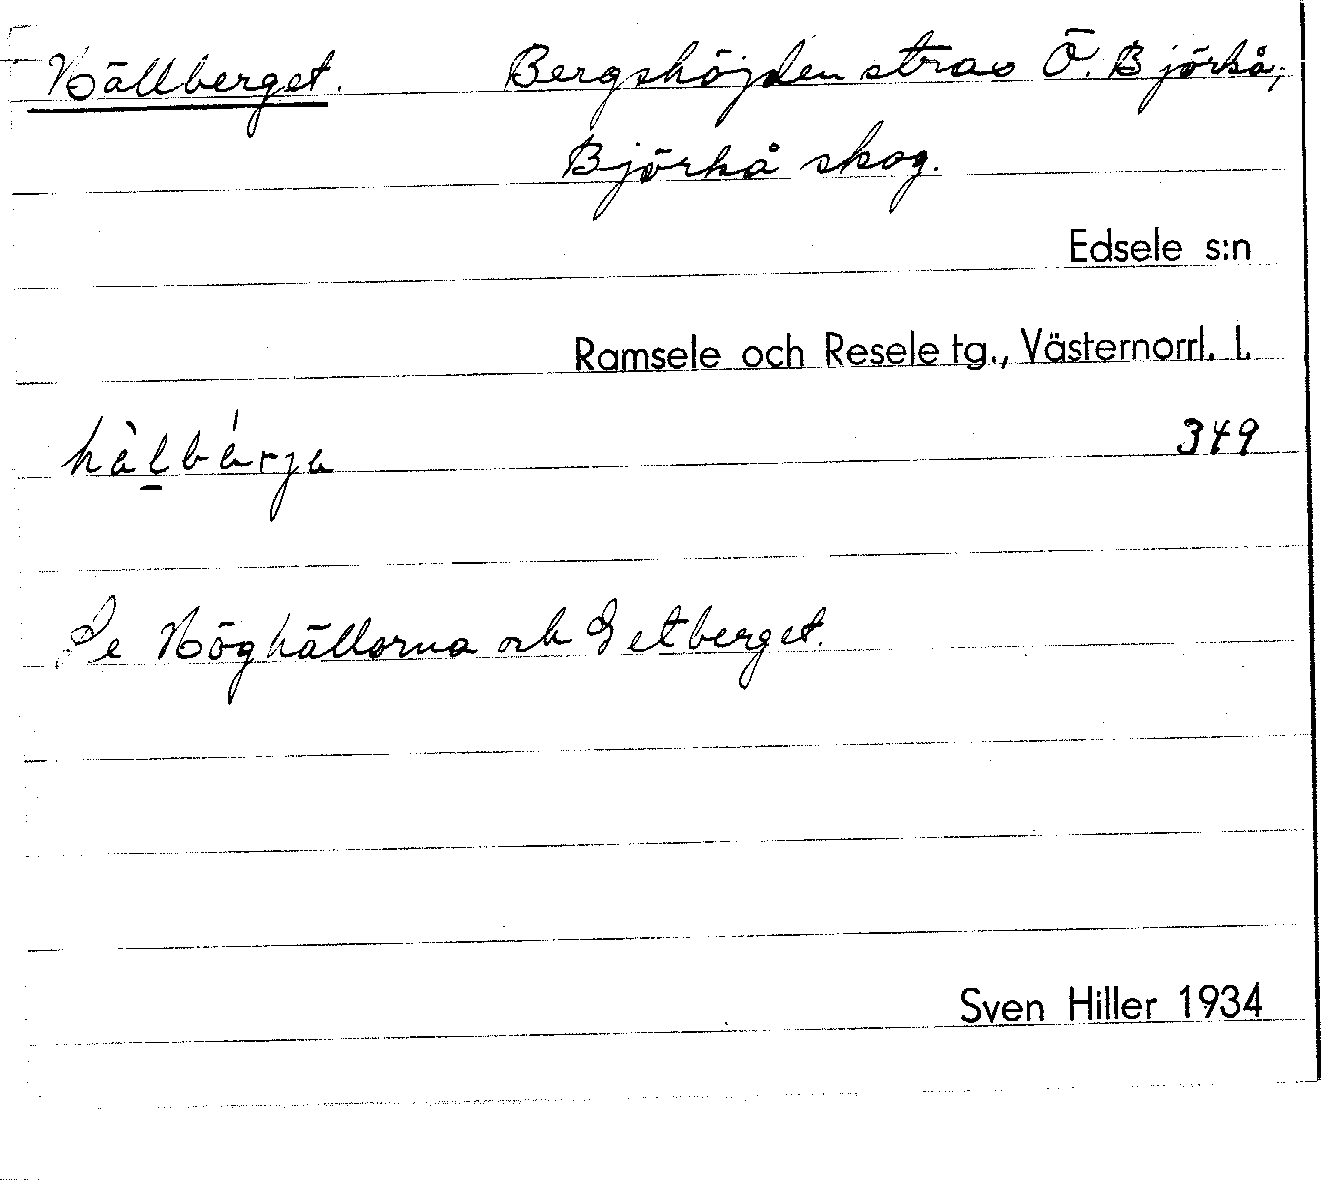 Hällberget. Bergshöjden strax Ö. Björkå,
Björkå skog.
Edsele s:n
Ramsele och Resele tg., Västernorrl. l.
349
Se Höghällorna och Getberget.
Sven Hiller 1934